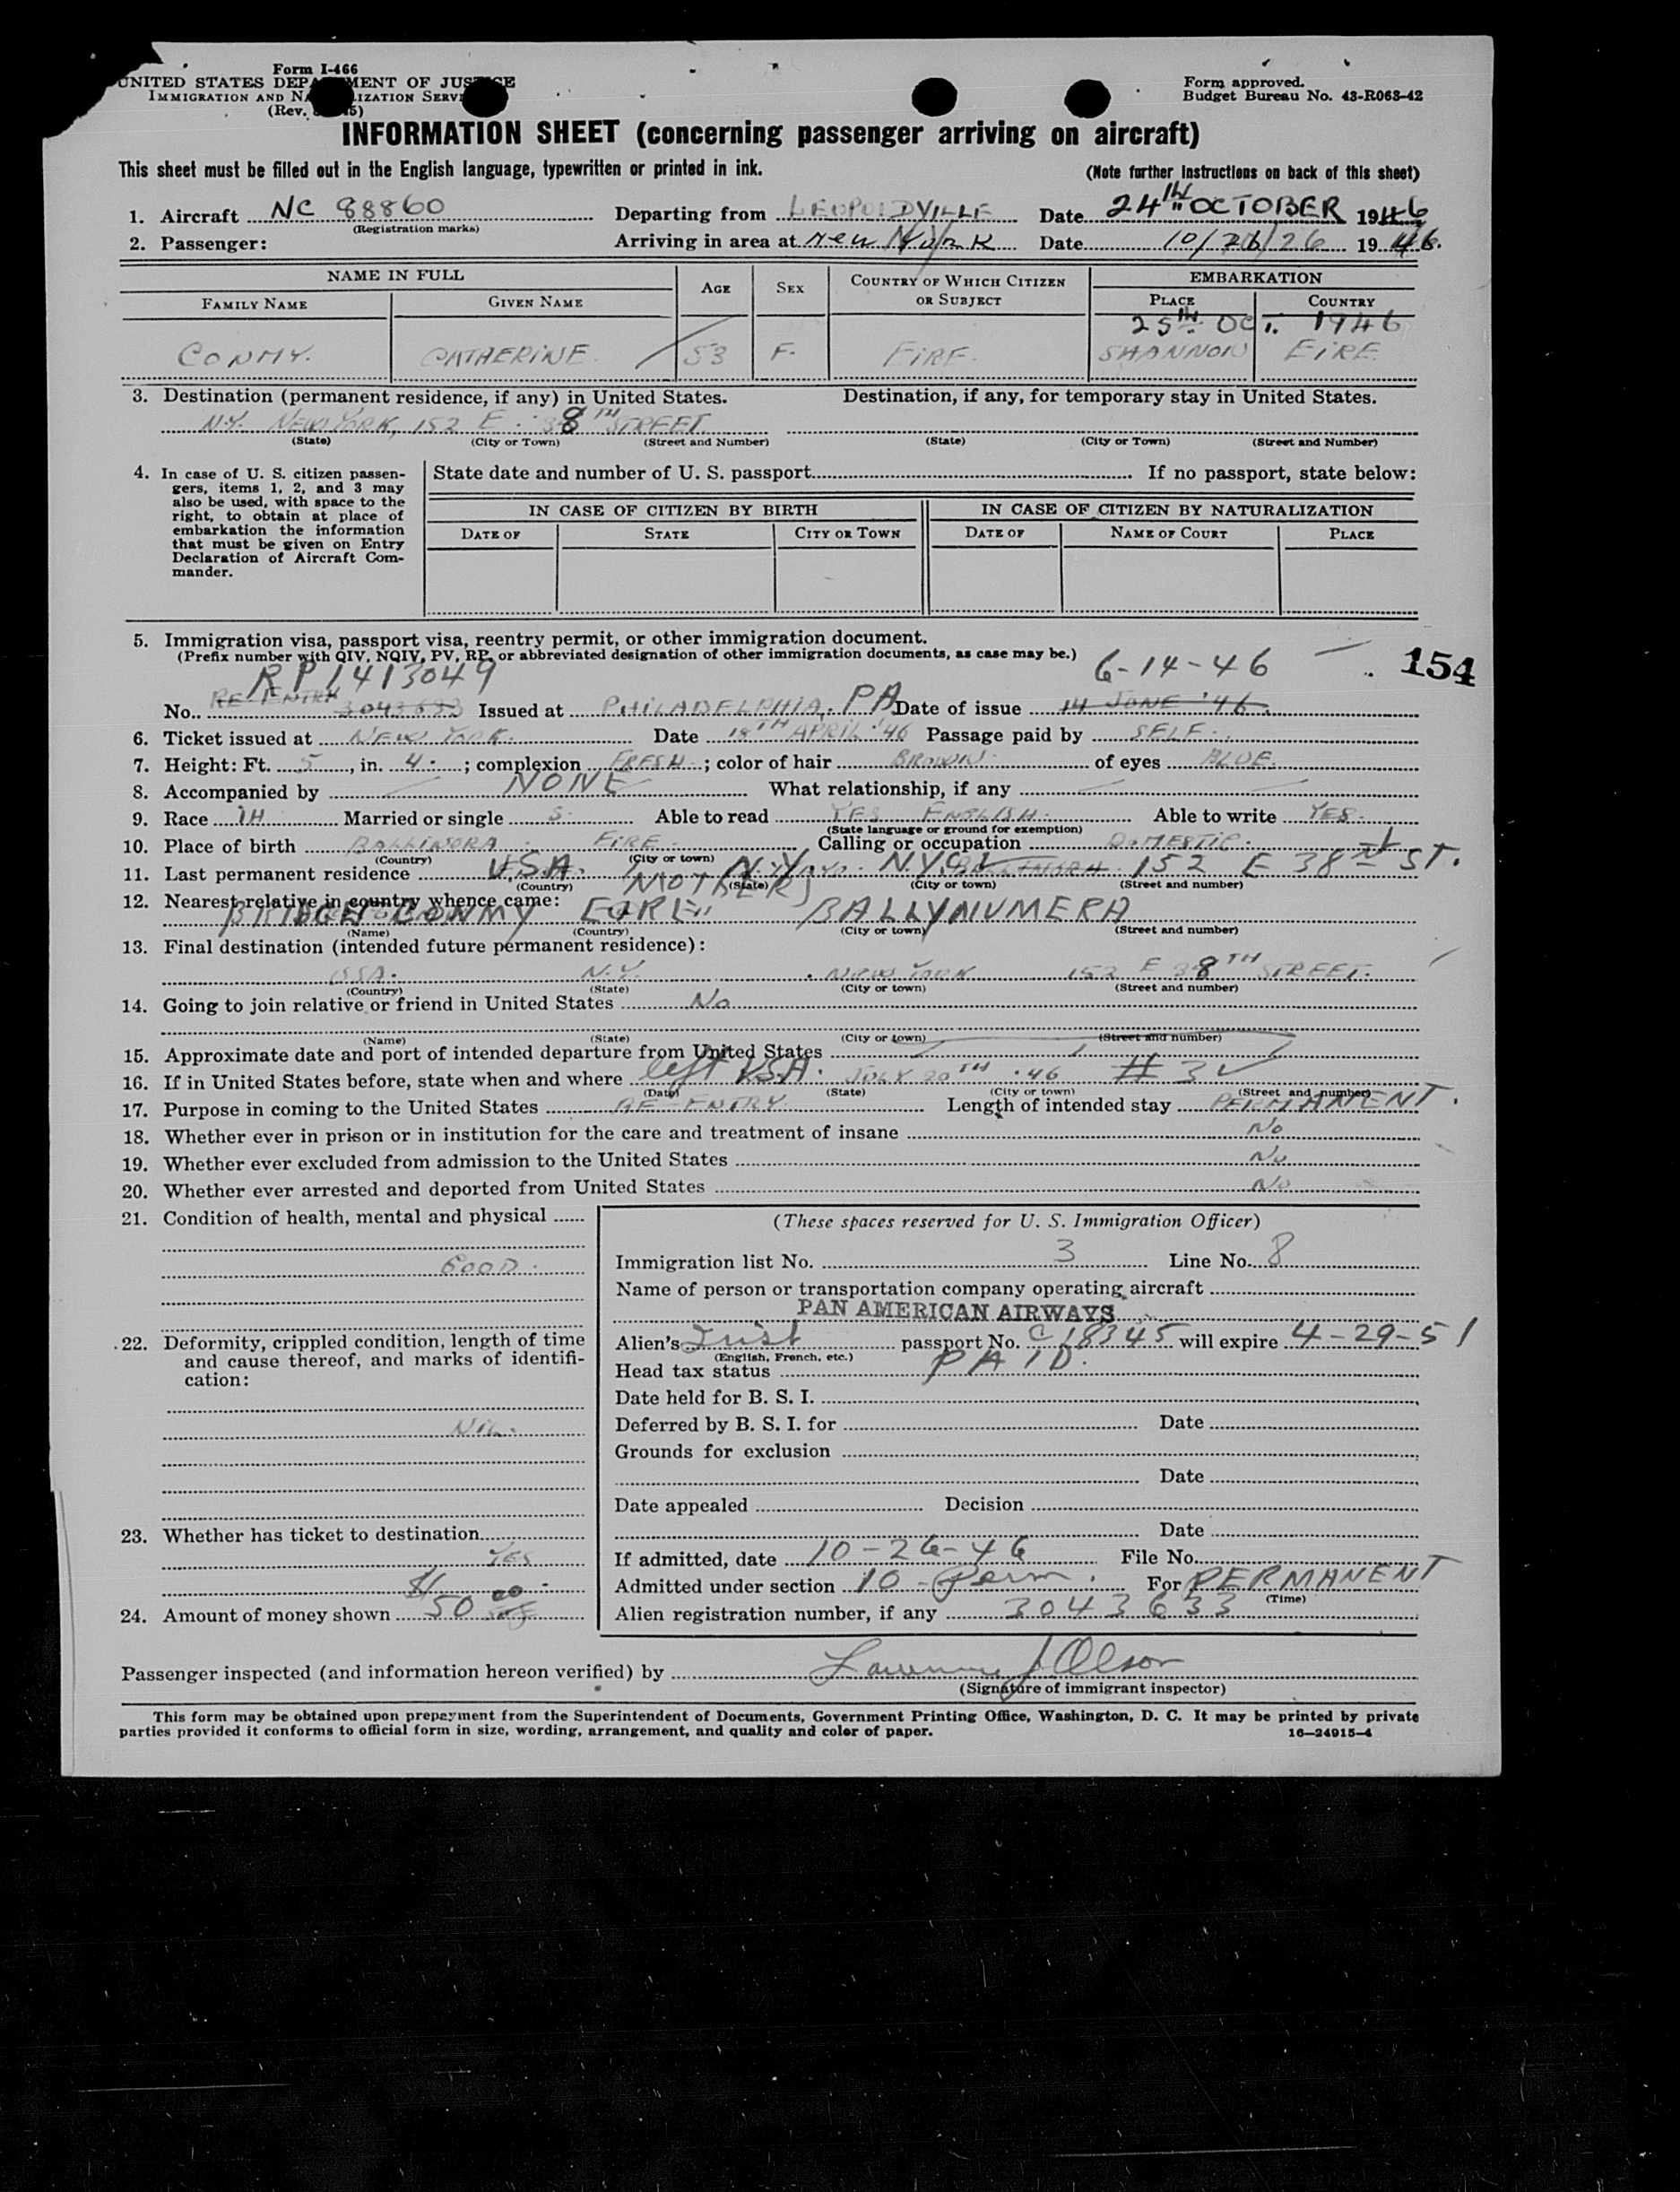 Form I-466
UNITED STATES DEPARTMENT OF JUSTICE
IMMIGRATION AND NATURALIZATION SERVICE
(Rev.
Form approved.
Budget Bureau No. 43-R063-42
INFORMATION SHEET (concerning passenger arriving on aircraft)
This sheet must be filled out in the English language, typewritten or printed in ink. (Note further instructions on back of this sheet)
1. Aircraft NC 88860 Departing from LEOPOLDVILLE Date 24TH OCTOBER 1946
(Registration marks)
2. Passenger: Arriving in area at New York Date 10/26/26 1946.
NAME IN FULL AGE SEX COUNTRY OF WHICH CITIZEN OR SUBJECT EMBARKATION
FAMILY NAME GIVEN NAME PLACE COUNTRY
25TH OCT. 1946
CONMY. CATHERINE 53 F. EIRE. SHANNON EIRE.
3. Destination (permanent residence, if any) in United States. Destination, if any, for temporary stay in United States.
N.Y. NEW YORK, 152 E. 38TH STREET.
(State) (City or Town) (Street and Number) (State) (City or Town) (Street and Number)
4. In case of U. S. citizen passengers, items 1, 2, and 3 may also be used, with space to the right, to obtain at place of embarkation the information that must be given on Entry Declaration of Aircraft Commander.
State date and number of U. S. passport If no passport, state below:
IN CASE OF CITIZEN BY BIRTH IN CASE OF CITIZEN BY NATURALIZATION
DATE OF STATE CITY OR TOWN DATE OF NAME OF COURT PLACE
5. Immigration visa, passport visa, reentry permit, or other immigration document.
(Prefix number with QIV, NQIV, PV, RP, or abbreviated designation of other immigration documents, as case may be.)
RP 1413049 6-14-46 154
No. RE-ENTRY 3043633 Issued at PHILADELPHIA, PA Date of issue 14 JUNE '46.
6. Ticket issued at NEW YORK. Date 18TH APRIL '46 Passage paid by SELF.
7. Height: Ft. 5, in. 4; complexion FRESH; color of hair BROWN of eyes BLUE.
8. Accompanied by NONE What relationship, if any
9. Race IH Married or single S. Able to read YES ENGLISH. Able to write YES.
(State language or ground for exemption)
10. Place of birth EIRE. Calling or occupation DOMESTIC.
(Country) (City or town)
11. Last permanent residence U.S.A. N.Y. N.Y.C. 152 E 38 ST.
(Country) (State) (City or town) (Street and number)
12. Nearest relative in country whence came: MOTHER
CONMY BALLYNUMERA
(Name) (Country) (City or town) (Street and number)
13. Final destination (intended future permanent residence):
USA. N.Y. NEW YORK 152 E 38TH STREET.
(Country) (State) (City or town) (Street and number)
14. Going to join relative or friend in United States No
(Name) (State) (City or town) (Street and number)
15. Approximate date and port of intended departure from United States
16. If in United States before, state when and where left USA. JULY 20TH '46 # 3
(Date) (State) (City or town) (Street and number)
17. Purpose in coming to the United States RE-ENTRY Length of intended stay PERMANENT.
18. Whether ever in prison or in institution for the care and treatment of insane No
19. Whether ever excluded from admission to the United States No
20. Whether ever arrested and deported from United States No
21. Condition of health, mental and physical
GOOD.
22. Deformity, crippled condition, length of time and cause thereof, and marks of identification:
NIL.
23. Whether has ticket to destination
YES
24. Amount of money shown $50.00
(These spaces reserved for U. S. Immigration Officer)
Immigration list No. 3 Line No. 8
Name of person or transportation company operating aircraft
PAN AMERICAN AIRWAYS
Alien's Irish passport No. C18345 will expire 4-29-51
(English, French, etc.)
Head tax status PAID.
Date held for B. S. I.
Deferred by B. S. I. for Date
Grounds for exclusion
Date
Date appealed Decision
Date
If admitted, date 10-26-46 File No.
Admitted under section 10 - Perm. For PERMANENT
(Time)
Alien registration number, if any 3043633
Passenger inspected (and information hereon verified) by Lawrence J Olson
(Signature of immigrant inspector)
This form may be obtained upon prepayment from the Superintendent of Documents, Government Printing Office, Washington, D. C. It may be printed by private
parties provided it conforms to official form in size, wording, arrangement, and quality and color of paper. 16—24915-4